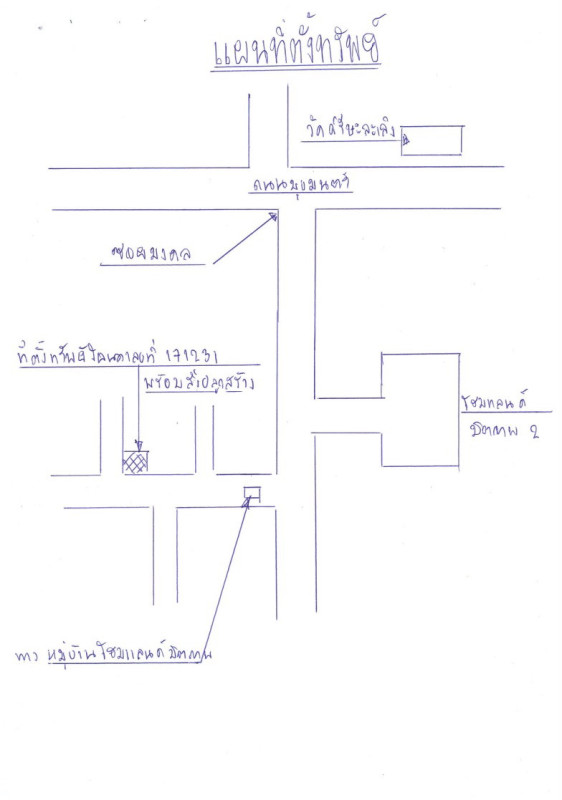 แผนที่ตั้งทรัพย์
วัดศรีษะละเลิง
ถนนมุขมนตรี
ซอยมงคล
ที่ตั้งทรัพย์โฉนดเลขที่ 171231
พร้อมสิ่งปลูกสร้าง
โฮมแลนด์
มิตรภาพ 2
หมู่บ้านโฮมแลนด์มิตรภาพ